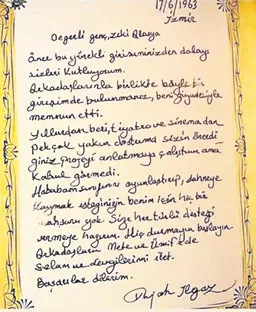 17/6/1963
İzmir
Değerli genç, zeki Alasya
Önce bu yürekli girişiminizden dolayı
sizleri Kutluyorum.
Arkadaşlarınla birlikte böyle bir
girişimde bulunmanız, beni ziyadesiyle
memnun etti.
Yıllardan beri, tiyatro ve sinemadan
pek çok yakın dostuma sizin önerdi
ğiniz Projeyi anlatmaya çalıştım ama
Kabul görmedi.
Hababam sınıfını oyunlaştırıp, sahneye
Koymak isteğinizin benim için hiç bir
mahsuru yok. Size her türlü desteği
vermeye hazırım. Hiç durmayın başlayın.
Arkadaşların Mete ve Ümit'e de
selam ve sevgilerimi ilet.
Başarılar dilerim.
Rıfat Ilgaz